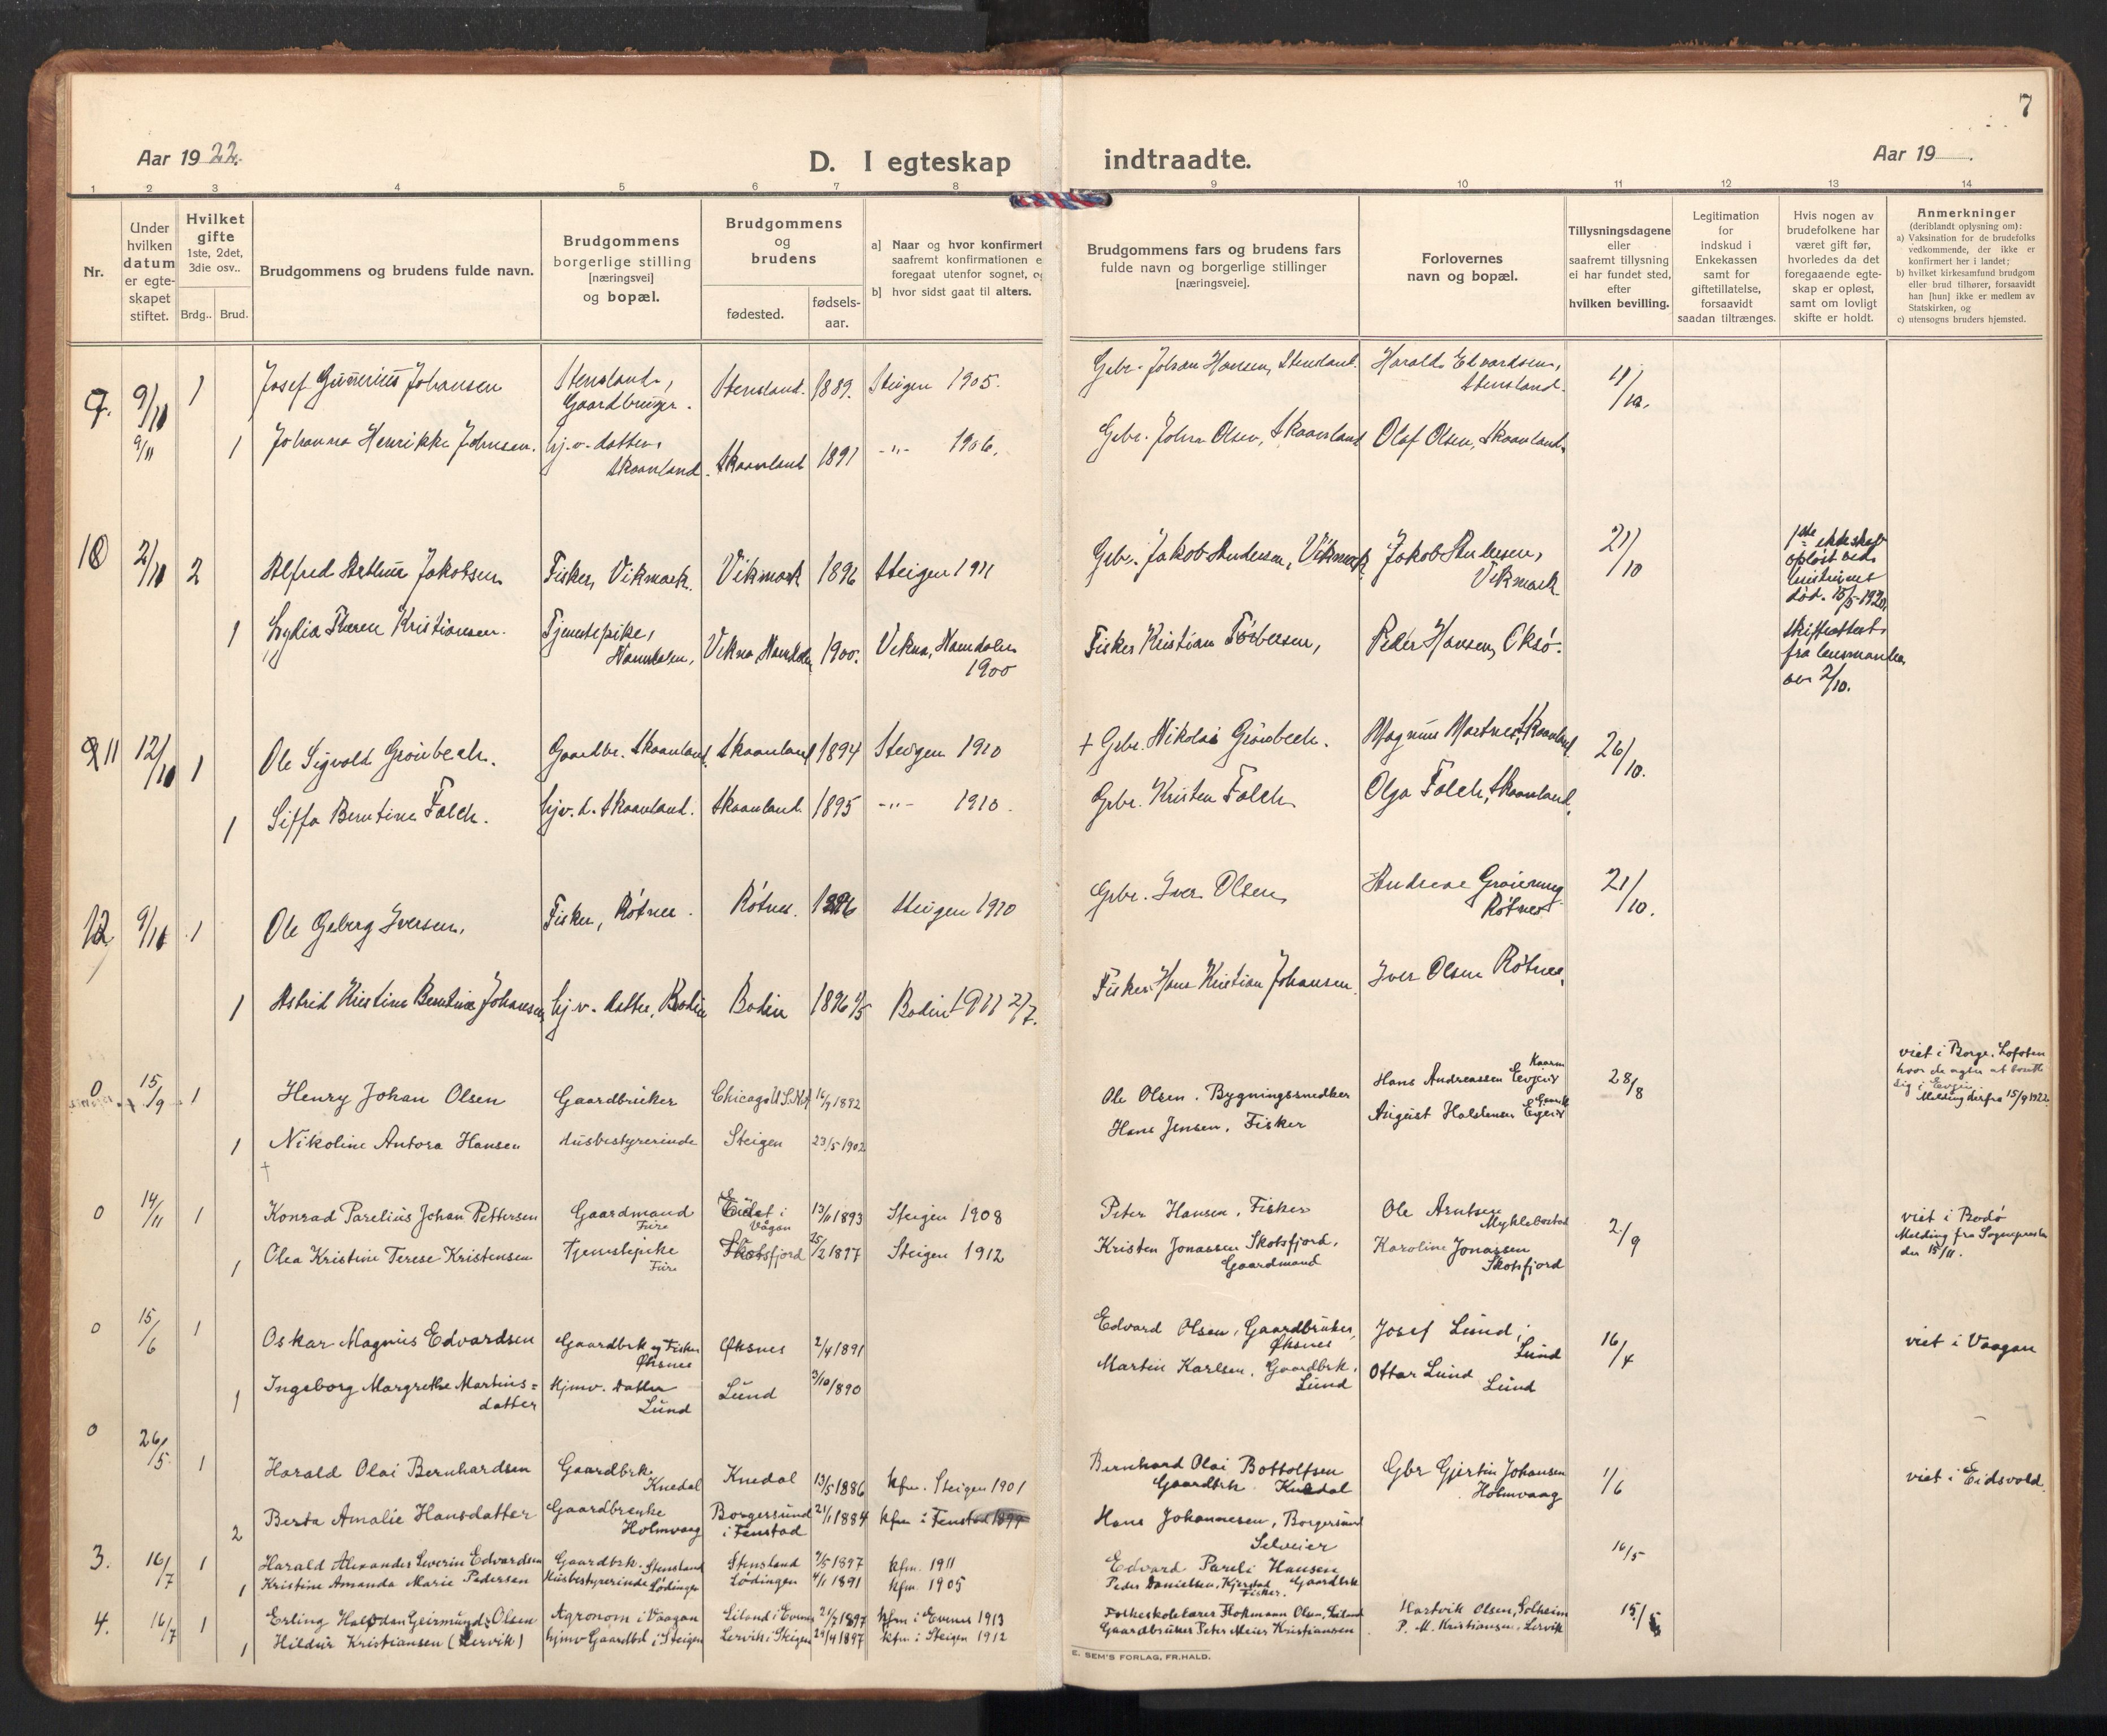 7
Aar 1922.
D. I egteskap
indtraadte.
Aar 19
1 2 3 4 5 6 7 8 9 10 11 12 13 14
Nr.
Under hvilken datum er egteskapet stiftet.
Hvilket gifte 1ste, 2det, 3die osv..
Brdg.. Brud.
Brudgommens og brudens fulde navn.
Brudgommens borgerlige stilling [næringsvei] og bopæl.
Brudgommens og brudens
fødested.
fødsels-aar.
a) Naar og hvor konfirmert saafremt konfirmationen e foregaat utenfor sognet, og
b) hvor sidst gaat til alters.
Brudgommens fars og brudens fars fulde navn og borgerlige stillinger [næringsveie].
Forlovernes navn og bopæl.
Tillysningsdagene eller saafremt tillysning ei har fundet sted, efter hvilken bevilling.
Legitimation for indskud i Enkekassen samt for giftetillatelse, forsaavidt saadan tiltrænges.
Hvis nogen av brudefolkene har været gift før, hvorledes da det foregaaende egte-skap er opløst, samt om lovligt skifte er holdt.
Anmerkninger (deriblandt oplysning om):
a) Vaksination for de brudefolks vedkommende, der ikke er konfirmert her i landet;
b) hvilket kirkesamfund brudgom eller brud tilhører, forsaavidt han [hun] ikke er medlem av Statskirken, og
c) utensogns bruders hjemsted.
9. 9/11 1 Josef Gunnerius Johansen Stensland, Gaardbruger. Stensland. 1889. Steigen 1905. Gbr. Johan Hansen, Stensland. Harald Edvardsen, Stensland.
9/11 1 Johanna Henrikke Johnsen. hj.v. datter, Skaanland. Skaanland 1891 -"- 1906. Gbr. Johan Olsen, Skaanland Olaf Olsen, Skaanland.
10 2/11 2 Alfred Arthur Jakobsen Fisker, Vikmark. Vikmark 1896 Steigen 1911 Gbr. Jakob Andersen, Vikmark Jakob Andersen, Vikmark 21/10
1ste ekteskap opløst ved hustruens død. 15/5-1920. Skifteattest fra lensmanden av 2/10.
1 Lydia Karen Kristiansen. Tjenestepike, Namdalen, Vikna, Namdalen 1900. Vikna, Namdalen 1900 Fisker Kristian Torbersen, Peder Hansen, Oksø.
11 12/11 1 Ole Sigvold Grønbech. Gaardbr. Skaanland. Skaanland 1894 Steigen 1910 + Gbr. Nikolai Grønbech. Magnus Martnes, Skaanland. 26/10.
1 Siffa Berntine Falch. hjv. d. Skaanland. Skaanland 1895 -"- 1910. Gbr. Kristen Falch Olga Falch, Skaanland.
12 9/11 1 Ole Geberg Iversen, Fisker, Røtnes. Røtnes. 1896 Steigen 1910 Gbr. Iver Olsen Andreas Røtnes 21/10.
1 Astrid Kristine Berntine Johansen hj v. datter, Bodin Bodin 1896 Bodin 1911 2/7. Fisker Hans Kristian Johansen. Iver Olsen Røtnes.
0 15/9 1 Henry Johan Olsen Gaardbruker Chicago U.S.N.A 1892 Ole Olsen. Bygningssnedker Hans Andreassen Evjen 28/8
viet i Borge, Lofoten hvor de agter at bosætte sig i Evjen Melding derfra 15/9 1922.
1 Nikoline Antora Hansen Husbestyrerinde Steigen 23/5-1902 Hans Jensen, Fisker August Haldensen Evjen
0 14/11 1 Konrad Parelius Johan Pettersen Gaardmand Fure Eidet i Vågan 13/11 1893 Steigen 1908 Peter Hansen, Fisker Ole Arntsen Myklebostad 2/9
viet i Bodø Melding fra Sognepresten den 15/11.
1 Olea Kristine Terese Kristensen Tjenestepike Fure Skotsfjord 25/2 1897 Steigen 1912 Kristen Jonassen Skotsfjord, Gaardmand Karoline Jonassen Skotsfjord
0 15/6 1 Oskar Magnus Edvardsen Gaardbrk og Fisker Øksnes Øksnes 2/4 1891 Edvard Olsen, Gaardbruker, Øksnes Josef Lund, Lund 16/4 viet i Vaagan
1 Ingeborg Margrethe Martins=datter Hjmv. datter Lund Lund 3/10 1890 Martin Karlsen, Gaardbrk. Lund Ottar Lund Lund
0 26/5 1 Harald Olai Bernhardsen Gaardbrk Knedal Knedal 13/5 1886 kfm. Steigen 1901 Bernhard Olai Bottolfsen Gaardbrk Knedal Gbr Gjertin Johansen Holmvaag 1/6 viet i Eidsvold
2 Berta Amalie Hansdatter Gaardbrenke Holmvaag Borgersund i Fenstad 21/1 1884 kfm i Fenstad 1899 Hans Johannesen, Borgersund Selveier
3. 16/7 1 Harald Alexander Severin Edvardsen Gaardbrk. Stensland Stensland 7/5 1897 kfm. 1911 Edvard Pareli Hansen Gaardbrk 16/5
1 Kristine Amanda Marie Pedersen Husbestyrerinde Lødingen Lødingen 4/1 1891 kfm. 1905 Peder Danielsen, Kjerstad Fisker.
4. 16/7 1 Erling Halfdan Geirmund Olsen Agronom i Vaagan Liland i Evenes 21/7 1897 kfm i Evenes 1913 Folkeskolelærer Hoffmann Olsen, Liland Hartvik Olsen, Solheim 15/5
1 Hildur Kristiansen (Lervik) hjmv Gaardbd i Steigen Lervik i Steigen 24/4 1897 kfm i Steigen 1912 Gaardbruker Peter Meier Kristiansen P. M. Kristiansen, Lervik
E. SEM'S FORLAG, FR.HALD.